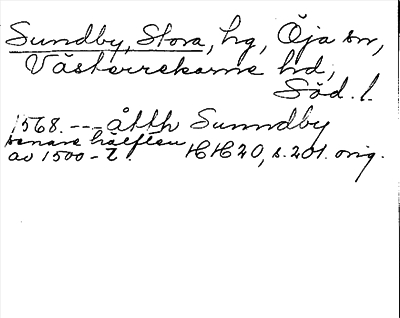 Sundby, Stora, hg, Öja sn,
Västerrekarne hd,
Söd. l.
1568. --- åtth Sunndby
senare hälften
av 1500-t. HH20, s. 201. orig.